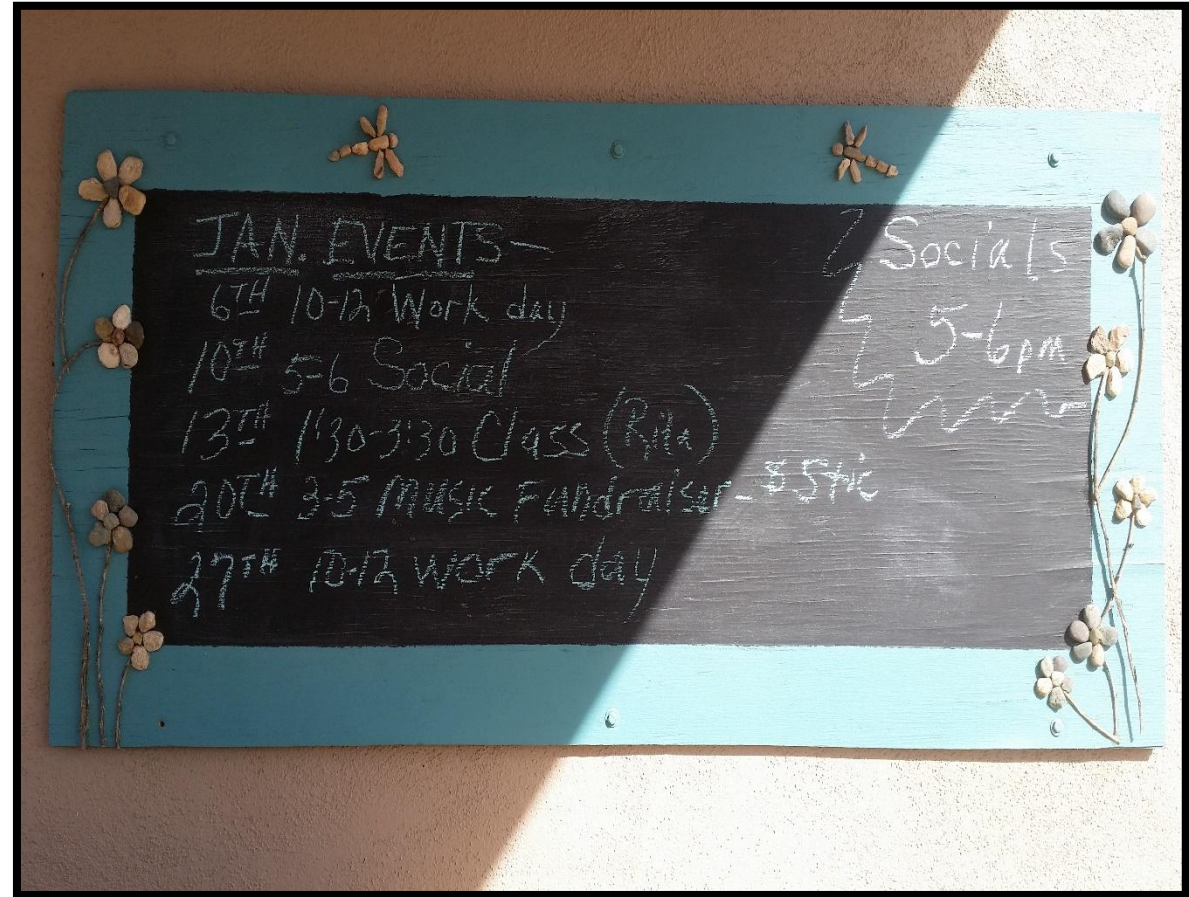 JAN. EVENTS-
6TH 10-12 Work day
10TH 5-6 Social
13TH 1:30-3:30 Class (Rita)
20TH 3-5 Music Fundraiser- $5tic
27TH 10-12 work day
Socials
5-6pm